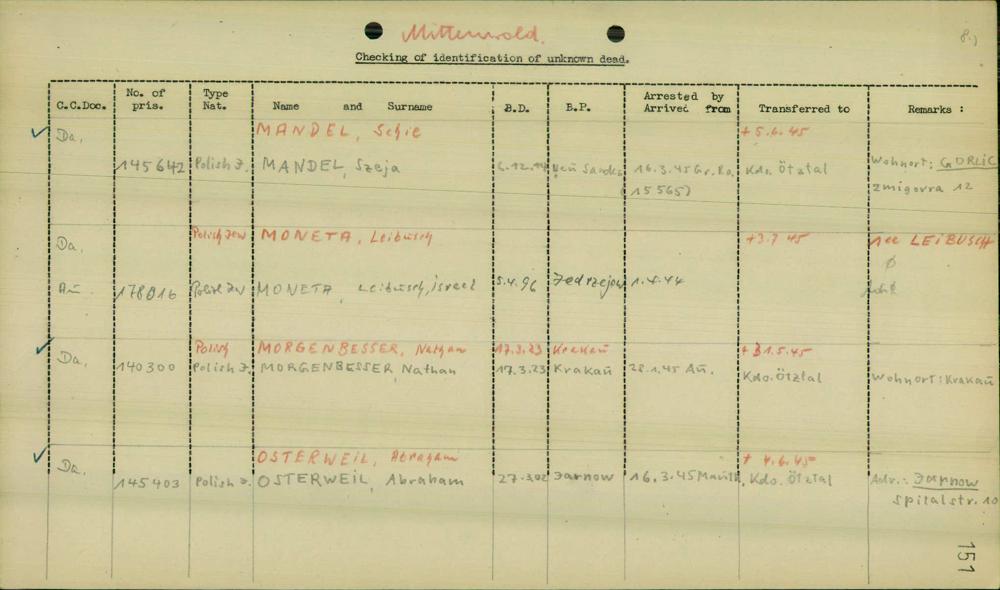 Mittenwald.
8.)
Checking of identification of unknown dead.
C.C.Doc. No. of pris. Type Nat. Name and Surname B.D. B.P. Arrested by Arrived from Transferred to Remarks :
Da. MANDEL, Schie + 5.6.45
145642 Polish J. MANDEL, Szeja 6.12.14 16.3.45 Gr. Ro. Kdo. Ötztal Wohnort: GORLIC
(15565) zmigorra 12
Da. Polish Jew MONETA, Leibusch +3.7 45 see LEIBUSCH
Au. 178016 MONETA, Leibusch, Israel 5.4.96 Jedrzejow 1.4.44
Polish MORGENBESSER, Nathan 17.3.23 Krakau + 31.5.45
Da. 140300 Polish J. MORGENBESSER, Nathan 17.3.23 Krakau 28.1.45 Au. Kdo. Ötztal Wohnort: Krakau
OSTERWEIL, Abraham + 4.6.45
Da. 145403 Polish J. OSTERWEIL, Abraham 27.3.02 Jarnow 16.3.45 Kdo. Ötztal Adr.: Jarnow
Spitalstr. 10
151